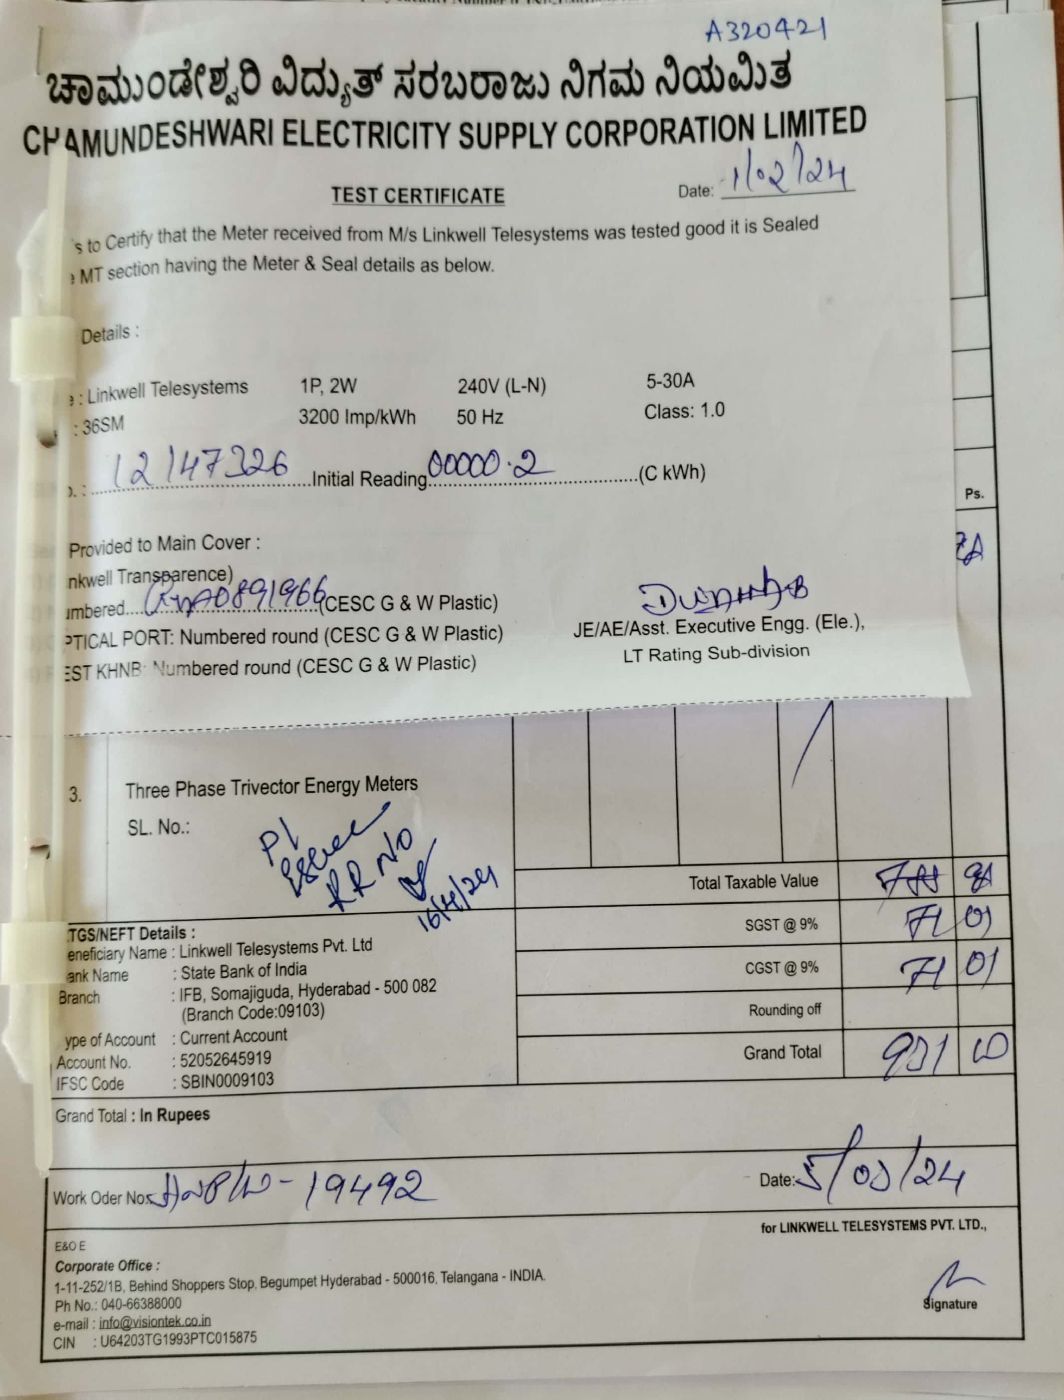 A320421
ಚಾಮುಂಡೇಶ್ವರಿ ವಿದ್ಯುತ್ ಸರಬರಾಜು ನಿಗಮ ನಿಯಮಿತ
CHAMUNDESHWARI ELECTRICITY SUPPLY CORPORATION LIMITED
TEST CERTIFICATE
Date: 1/02/24
's to Certify that the Meter received from M/s Linkwell Telesystems was tested good it is Sealed
MT section having the Meter & Seal details as below.
Details :
: Linkwell Telesystems 1P, 2W 240V (L-N) 5-30A
: 36SM 3200 Imp/kWh 50 Hz Class: 1.0
12147326 Initial Reading 00000.2 (C kWh)
Ps.
Provided to Main Cover :
nkwell Transparence)
umbered 0891966 (CESC G & W Plastic)
PTICAL PORT: Numbered round (CESC G & W Plastic)
JE/AE/Asst. Executive Engg. (Ele.),
EST KHNB: Numbered round (CESC G & W Plastic)
LT Rating Sub-division
3. Three Phase Trivector Energy Meters
SL. No.:
Pl
Issue
RR NO
16/4/24
Total Taxable Value
SGST @ 9% 71 01
CGST @ 9% 71 01
Rounding off
Grand Total 931
TGS/NEFT Details :
eneficiary Name : Linkwell Telesystems Pvt. Ltd
ank Name : State Bank of India
Branch : IFB, Somajiguda, Hyderabad - 500 082
(Branch Code:09103)
ype of Account : Current Account
Account No. : 52052645919
IFSC Code : SBIN0009103
Grand Total : In Rupees
Work Oder No: - 19492
Date: 5/03/24
for LINKWELL TELESYSTEMS PVT. LTD.,
E&O E
Corporate Office :
1-11-252/1B, Behind Shoppers Stop, Begumpet Hyderabad - 500016, Telangana - INDIA.
Ph No.: 040-66388000
e-mail : info@visiontek.co.in
CIN : U64203TG1993PTC015875
Signature